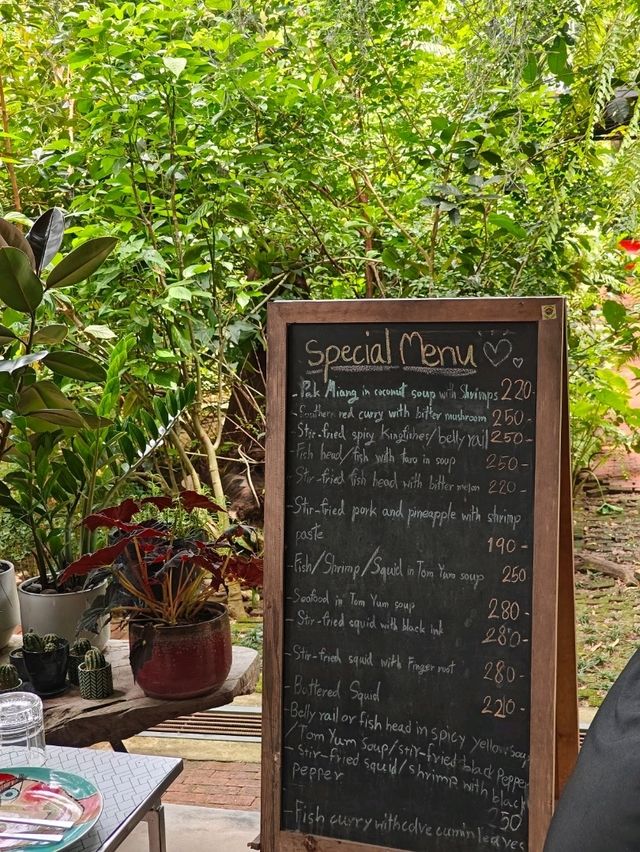 Special Menu
- Pak Miang in coconut soup with Shrimps 220-
- Southern red curry with bitter mushroom 250-
- Stir-fried spicy Kingfishes/belly rail 250-
- Fish head/fish with taro in soup 250-
- Stir-fried fish head with bitter melon 220-
- Stir-fried pork and pineapple with shrimp
paste 190-
- Fish/Shrimp/Squid in Tom Yum soup 250
- Seafood in Tom Yum soup 280-
- Stir-fried squid with black ink 280-
- Stir-fried squid with Finger root 280-
- Battered Squid 220-
- Belly rail or fish head in spicy yellow soup
/Tom Yum Soup/stir-fried black Pepper
- Stir-fried squid/shrimp with black
pepper 250
- Fish curry with cumin leaves